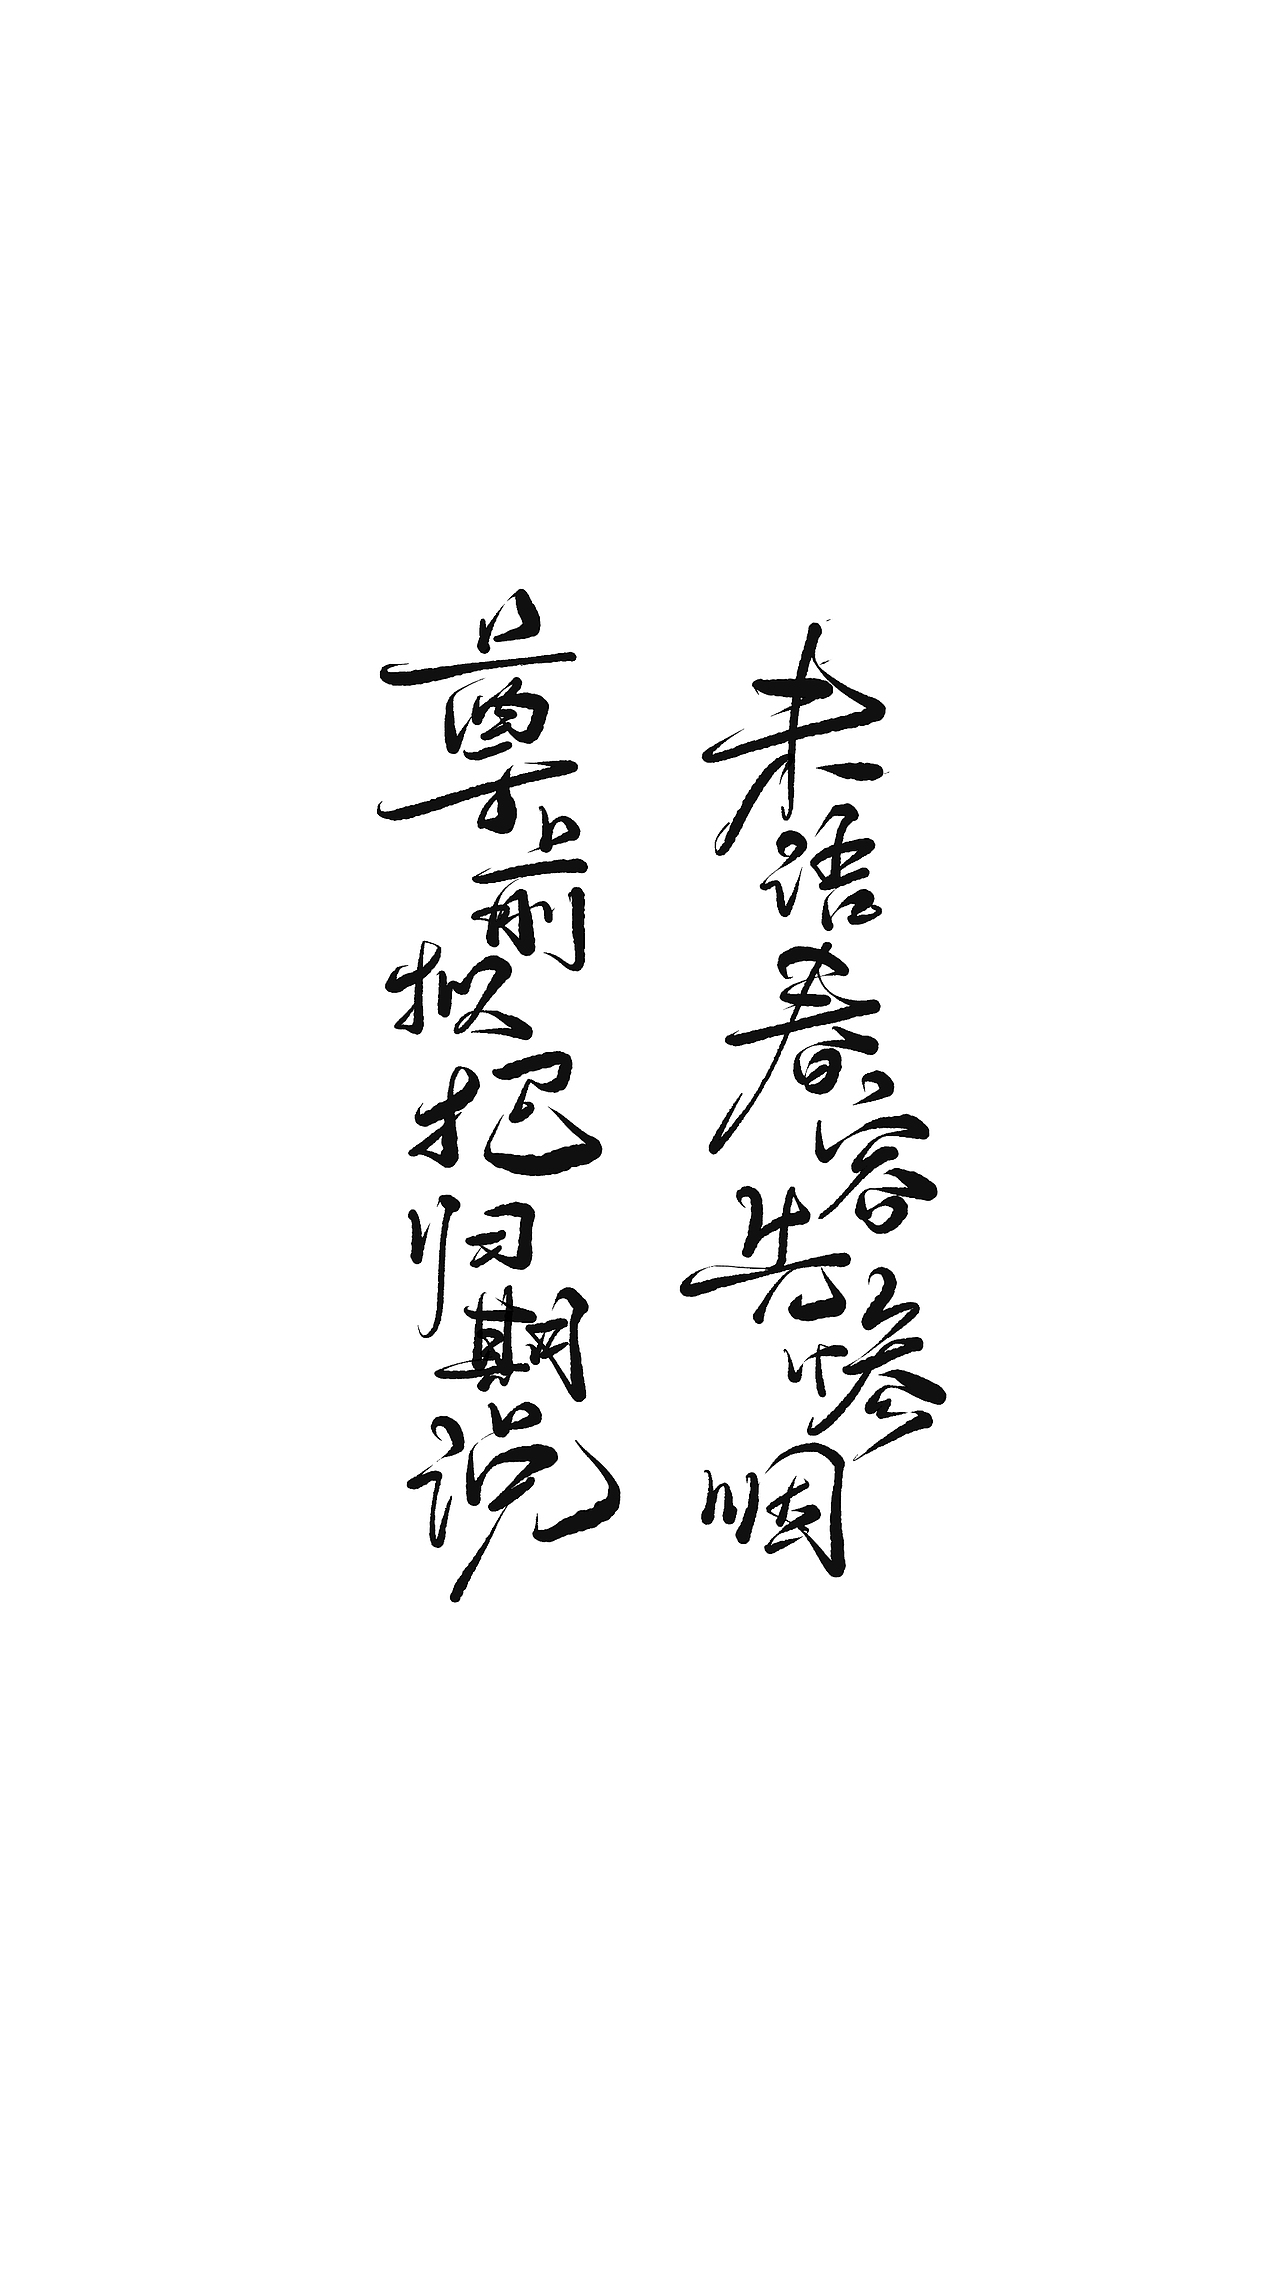 未语春容先惨咽
尊前拟把归期说